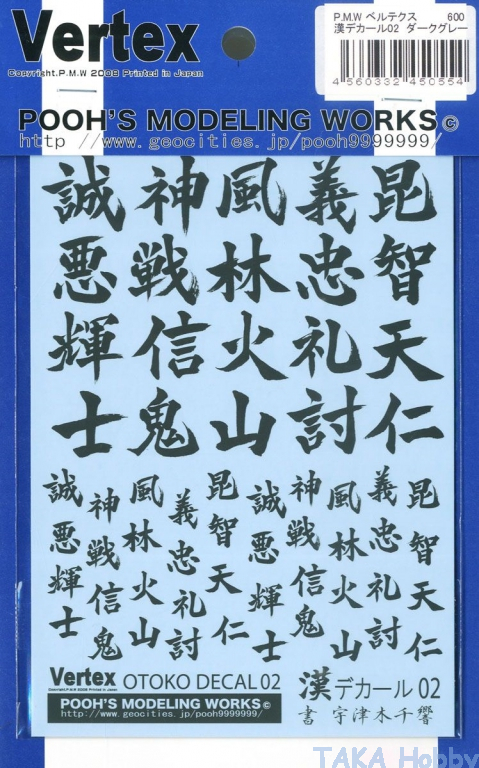 Vertex
Copyright.P.M.W 2008 Printed in Japan
P.M.W ベルテクス 600
漢デカール02 ダークグレー
4 560332 450554
POOH'S MODELING WORKS©
http://www.geocities.jp/pooh9999999/
誠 神 風 義 昆
悪 戦 林 忠 智
輝 信 火 礼 天
士 鬼 山 討 仁
誠 神 風 義 昆 誠 神 風 義 昆
悪 戦 林 忠 智 悪 戦 林 忠 智
輝 信 火 礼 天 輝 信 火 礼 天
士 鬼 山 討 仁 士 鬼 山 討 仁
Vertex OTOKO DECAL 02
Copyright.P.M.W 2008 Printed in Japan
POOH'S MODELING WORKS©
http://www.geocities.jp/pooh9999999/
漢デカール 02
書 宇津木千響
TAKA Hobby